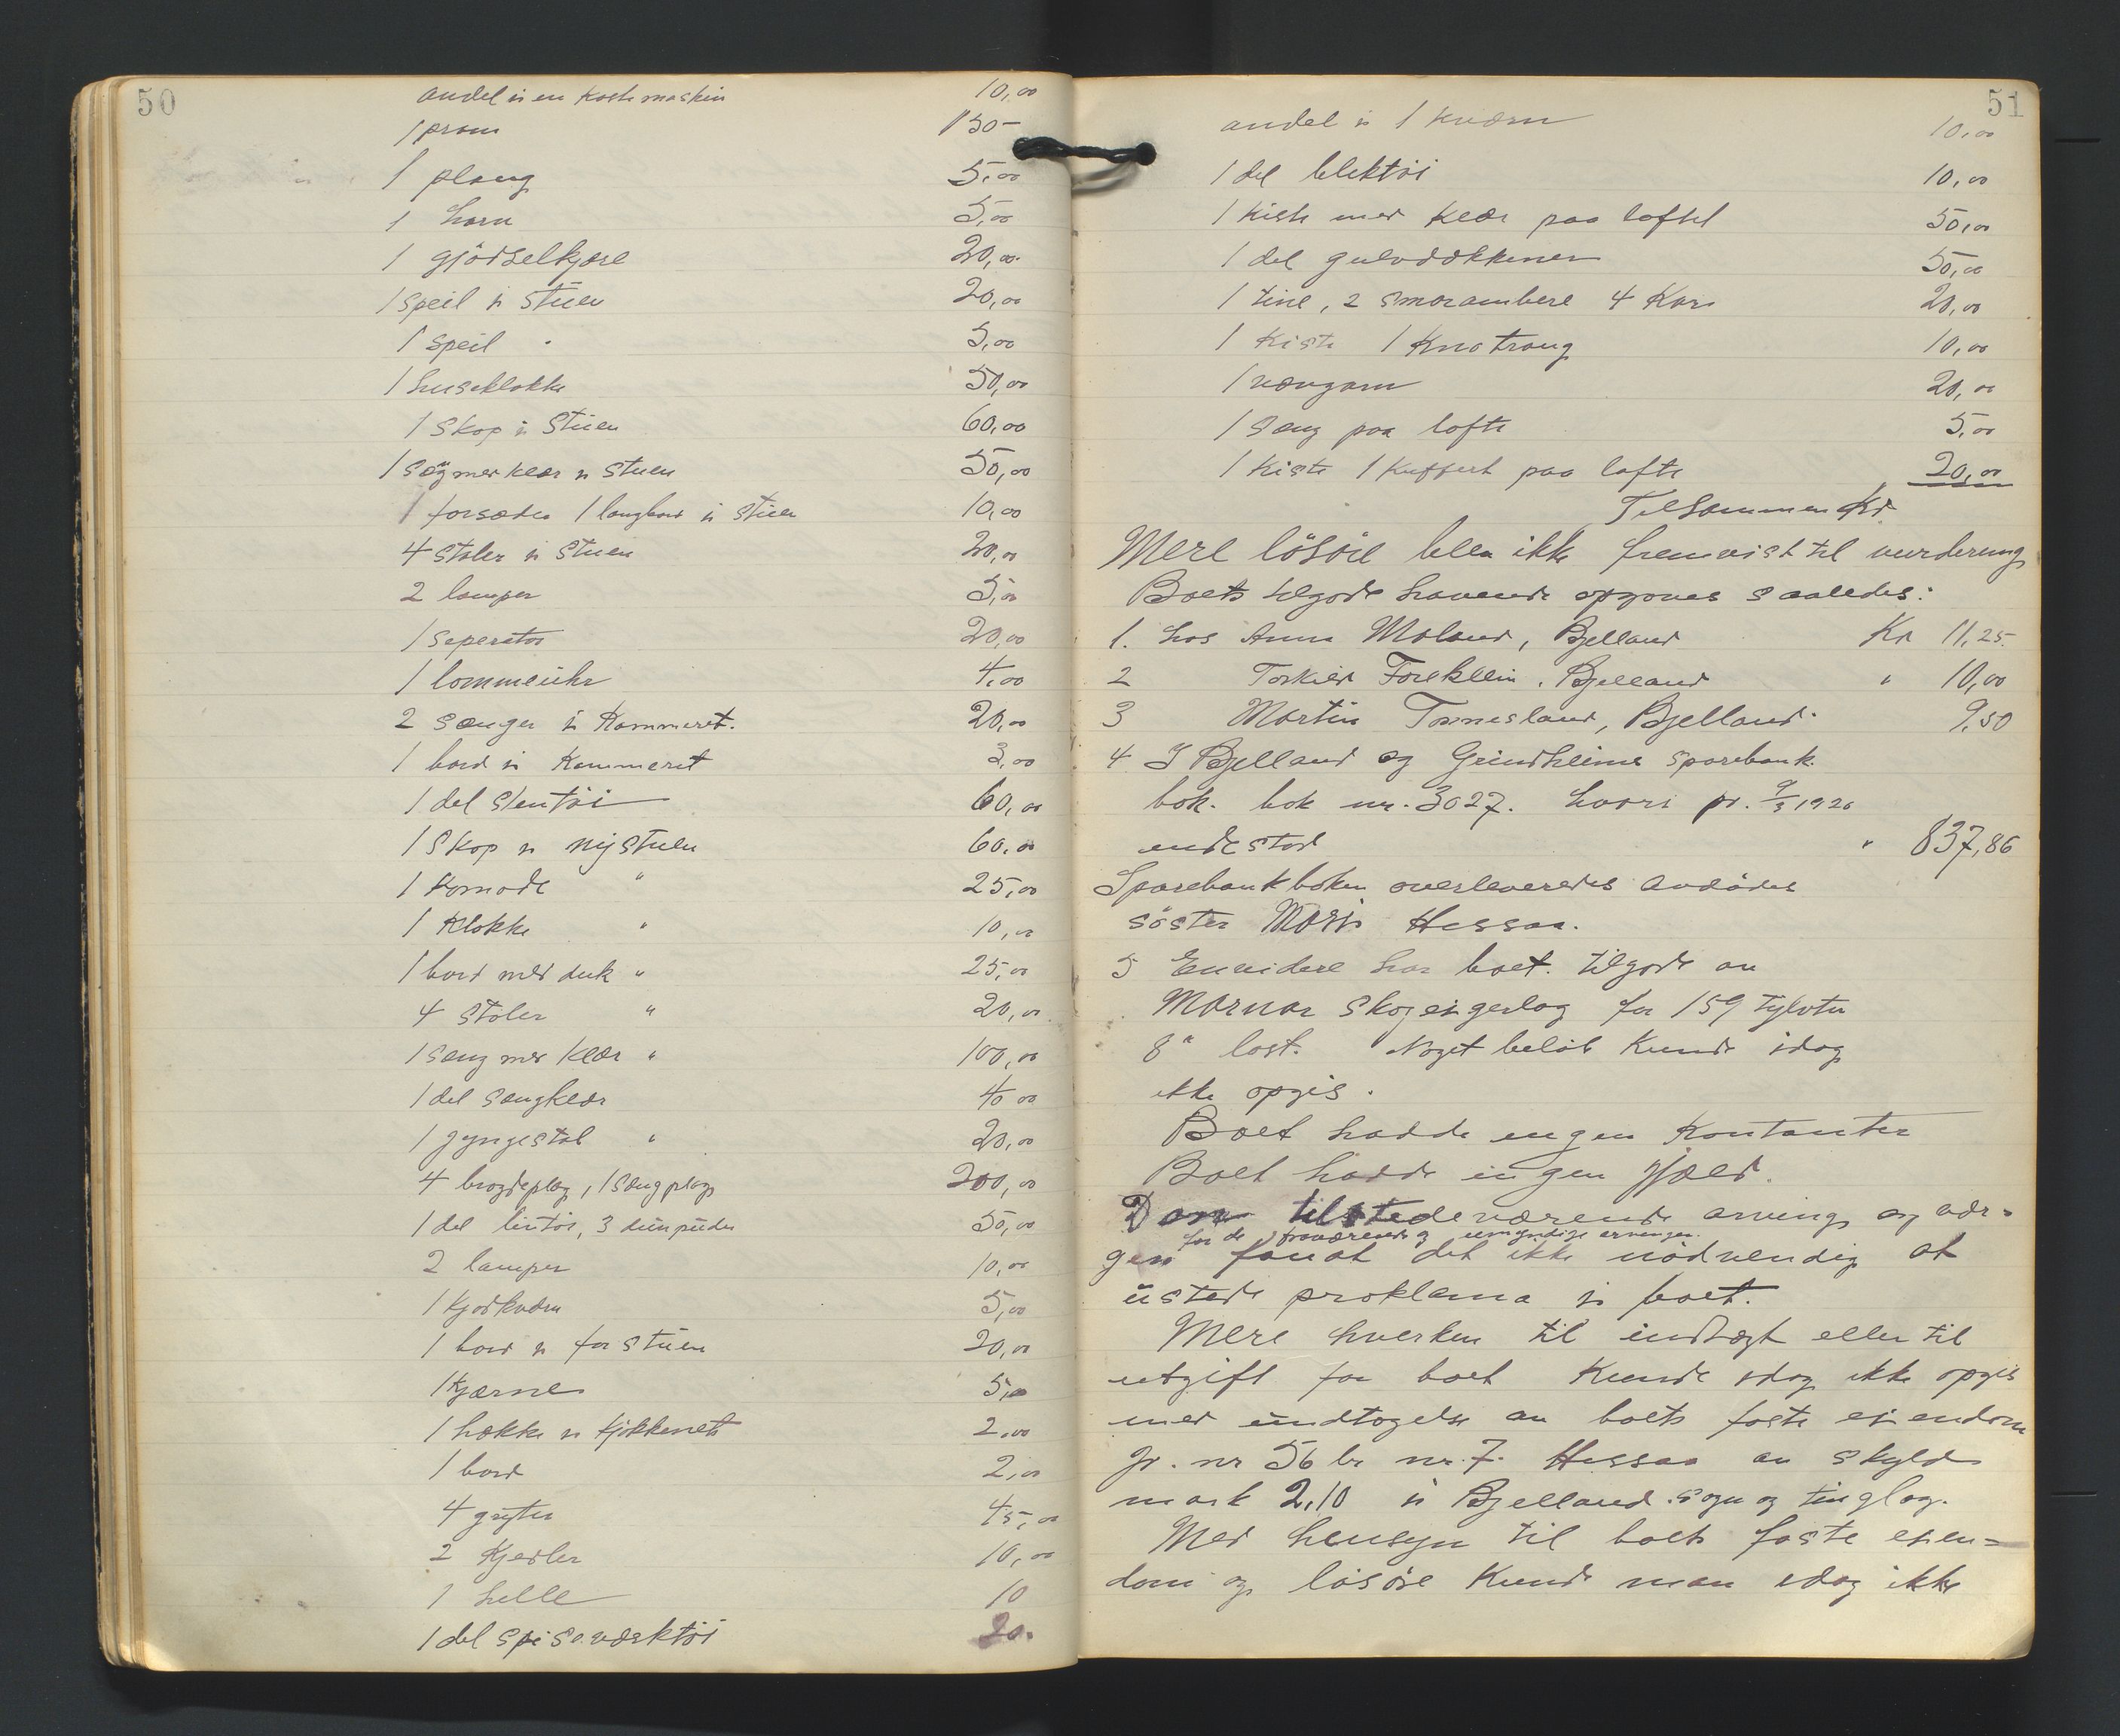 50
andel i en kastemaskin 10,00
1 pram 130-
1 plaug 5,00
1 harv 5,00
1 gjödselkjære 20,00
1 speil i stuen 20,00
1 speil " 5,00
1 huseklokke 50,00
1 skap i stuen 60,00
1 sæng med klær i stuen 50,00
1 forsæde 1 langbord i stuen 10,00
4 stoler i stuen 20,00
2 lamper 5,00
1 seperator 20,00
1 lommeuhr 4,00
2 sænger i Kammeret. 20,00
1 bord i Kammeret 3,00
1 del stentöi 60,00
1 skap i nystuen 60,00
1 Komode " 25,00
1 Klokke " 10,00
1 bord med duk " 25,00
4 stoler " 20,00
1 sæng med klær " 100,00
1 del sængklær 40,00
1 gyngestol " 20,00
4 brogdeplag, 1 sængplag 200,00
1 del lintöi, 3 dunpuder 50,00
2 lamper 10,00
1 kjödkværn 5,00
1 bord i forstuen 20,00
1 kjærne 5,00
1 hække i kjökkenet 2,00
1 bord 2,00
4 gryter 45,00
2 Kjedler 10,00
1 helle 10
1 del spiseværktöi 20.
51
andel i 1 kværn 10,00
1 del blektöi 10,00
1 kiste med klær paa loftet 50,00
1 del gulvdækkener 50,00
1 tine, 2 smørambere 4 Kar 20,00
1 Kiste 1 Knatraug 10,00
1 vævgarn 20,00
1 sæng paa lofte 5,00
1 Kiste 1 Kuffert paa lofte 20,00
Tilsammen Kr
Mere lösöre blev ikke fremvist til vurdering
Boets tilgode havende opgives saaledes:
1. hos Anna Moland, Bjelland Kr 11,25
2 Torkild Foreklein, Bjelland " 10,00
3 Martin Tonnesland, Bjelland 9,50
4 I Bjelland og Grindheims sparebank
bok. bok nr. 3027. hvori pr. 9/3 1926
indestod " 837,86
Sparebankboken overleveredes avdödes
söster Mari Hessaa.
5 Envidere har boet tilgode av
Marnar skogeigerlag for 159 tylvter
8" last. Noget belöb kunde idag
ikke opgis.
Boet hadde ingen Kontanter
Boet hadde ingen gjæld.
Den tilstedeværende arving og vær-
for de fraværende og umyndige arvinger.
gen fandt det ikke nödvendig at
utstede proklama i boet.
Mere hverken til indtægt eller til
utgift for boet kunde idag ikke opgis
med undtagelse av boets faste eiendom
gr. nr 56 br nr. 7. Hessaa av skyld
mark 2,10 i Bjelland sogn og tinglag.
Med hensyn til boets faste eien=
dom og lösöre kunde man idag ikke